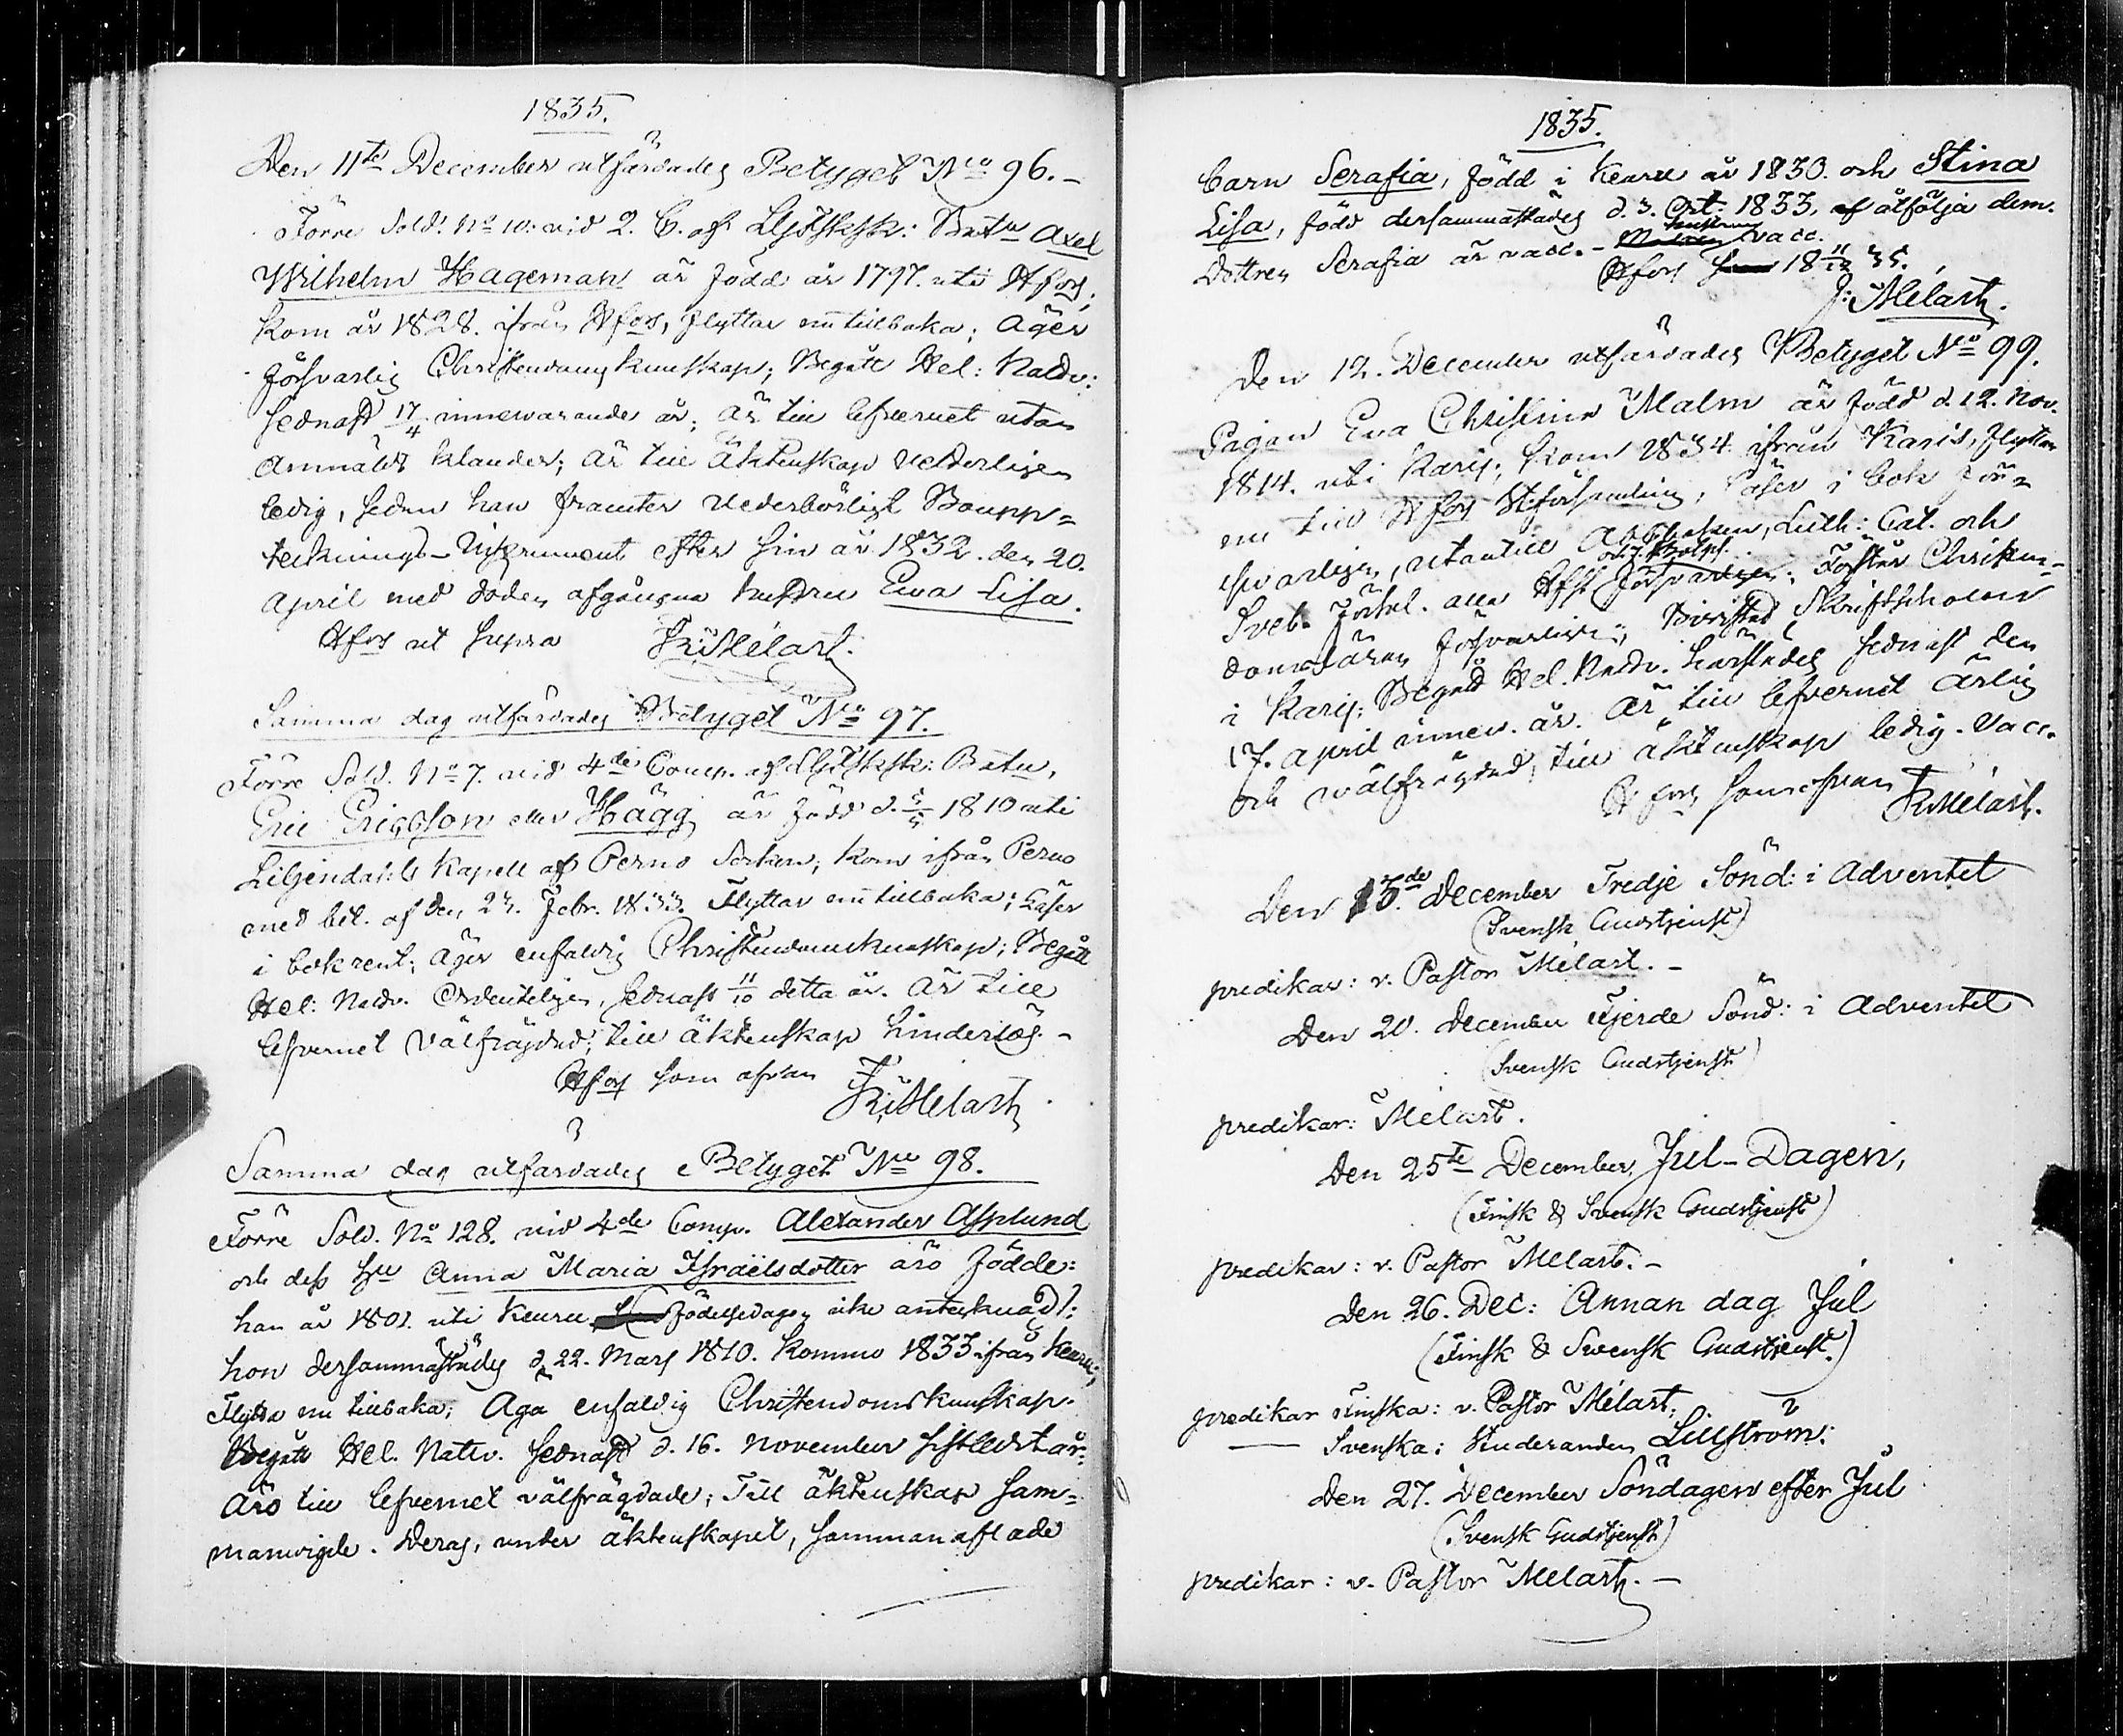 1835.
Den 11te December utfärdades Betyget No 96.-
Förre Sold. No 10. vid 2. C. af Lifsksk: Batn Axel
Wilhelm Hageman är född år 1797. uti Hfors;
kom år 1828. ifrån Hfors, flyttar nu tillbaka; Äger
försvarlig Christendoms kunskap; Begått Hel: Nattv:
sednast 17/4 innevarande år; är till lefvernet utan
anmäldt klander; är till äktenskap vederligen
ledig, sedan han framter vederbörligt Boupp=
tecknings-Instrument efter sin år 1832. den 20.
April med döden afgångna hustru Eva Lisa.
Hfors ut supra
Melart.
Samma dag utfärdades Betyget No 97.
Förre Sold. No 7. vid 4de Comp. af Batn,
Eric Ericsson eller Hägg är född d. 1810 uti
Liljendahls Kapell af Perno Socken; kom ifrån Perno
med bet. af den 23. Febr. 1833. Flyttar nu tillbaka; Läser
i bok rent; äger enfaldig Christendomskunskap; Begått
Hel: Nattv. Ordenteligen, sednast 11/10 detta år. Är till
lefvernet välfrägdad; till äktenskap hinderlös.-
Hfors som ofvan
Melart
Samma dag utfärdades Betyget No 98.
Förre Sold. No 128. vid 4de Comp. Alexander Asplund
och dess Hu Anna Maria Israëlsdotter äro födde:
han år 1801. uti Keuru födelsedagen icke antecknad):
hon dersammastädes d. 22. Mars 1810. Kommo 1833 ifrån Keuru;
Flytta nu tillbaka; Äga enfaldig Christendomskunskap.
Begått Hel. Nattv. sednast d. 16. November sistledit år:
Äro till lefvernet välfrägdade; Till äktenskap sam=
manvigde. Deras, under äktenskapet, sammanaflade
1835.
barn Serafia, född i Keuru år 1830. och Stina
Lisa, född dersammastädes d. 3. Oct. 1833, åtfölja dem.
Dottren Serafia är vacc.- hustrun vacc.
Hfors 18 11/12 35.
Melart.
Den 12. December utfärdades Betyget No 99.
Pigan Eva Christina Malm är född d. 12. Nov.
1814. uti Karis; kom 1834 ifrån Karis, flyttar
nu till Hfors Stsförsamling, Läser i bok för=
svarligen, utantill Abcboken, Luth: Cat. och
Sveb. Förkl. alla Hfst Försvarligen; Förstår Christen=
domsläran försvarligen; Bivistad Skriftskolan
i Karis; Begått Hel. Nattv. härstädes sednast den
17. April innev. år. Är till lefvernet ärlig
och wälfrägdad; till äktenskap ledig. Vacc.
Hfors som ofvan
Melart.
Den 13de December Tredje Sönd: i Adventet
(Svensk Gudstjenst)
predikar: v. Pastor Melart.-
Den 20. December Fjerde Sönd: i Adventet
(Svensk Gudstjenst)
predikar: Melart.
Den 25te December, Jul-Dagen,
(Finsk & Svensk Gudstjenst)
predikar: v. Pastor Melart.-
Den 26. Dec: Annan dag Jul
(Finsk & Swensk Gudstjenst.)
predikar Finska: v. Pastor Melart;
Svenska: Studeranden Lillström:
Den 27. December Söndagen efter Jul
(Svensk Gudstjenst)
predikar: v. Pastor Melart.-